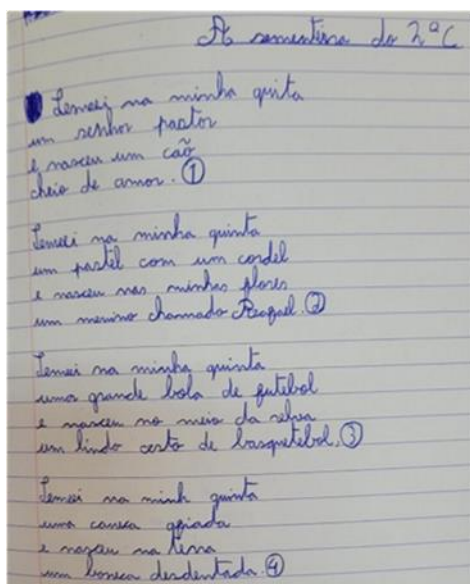 A sementeira do 2ºC
Semeei na minha quita
um senhor pastor
e nasceu um cão
cheio de amor. ①
Semeei na minha quinta
um pastel com um cordel
e nasceu nas minhas flores
um menino chamado Reafael. ②
Semeei na minha quinta
uma grande bola de futebol
e nasceu no meio da selva
um lindo cesto de basquetebol. ③
Semeei na minh quinta
uma caneca
e nasceu na terra
um boneca desdentada. ④